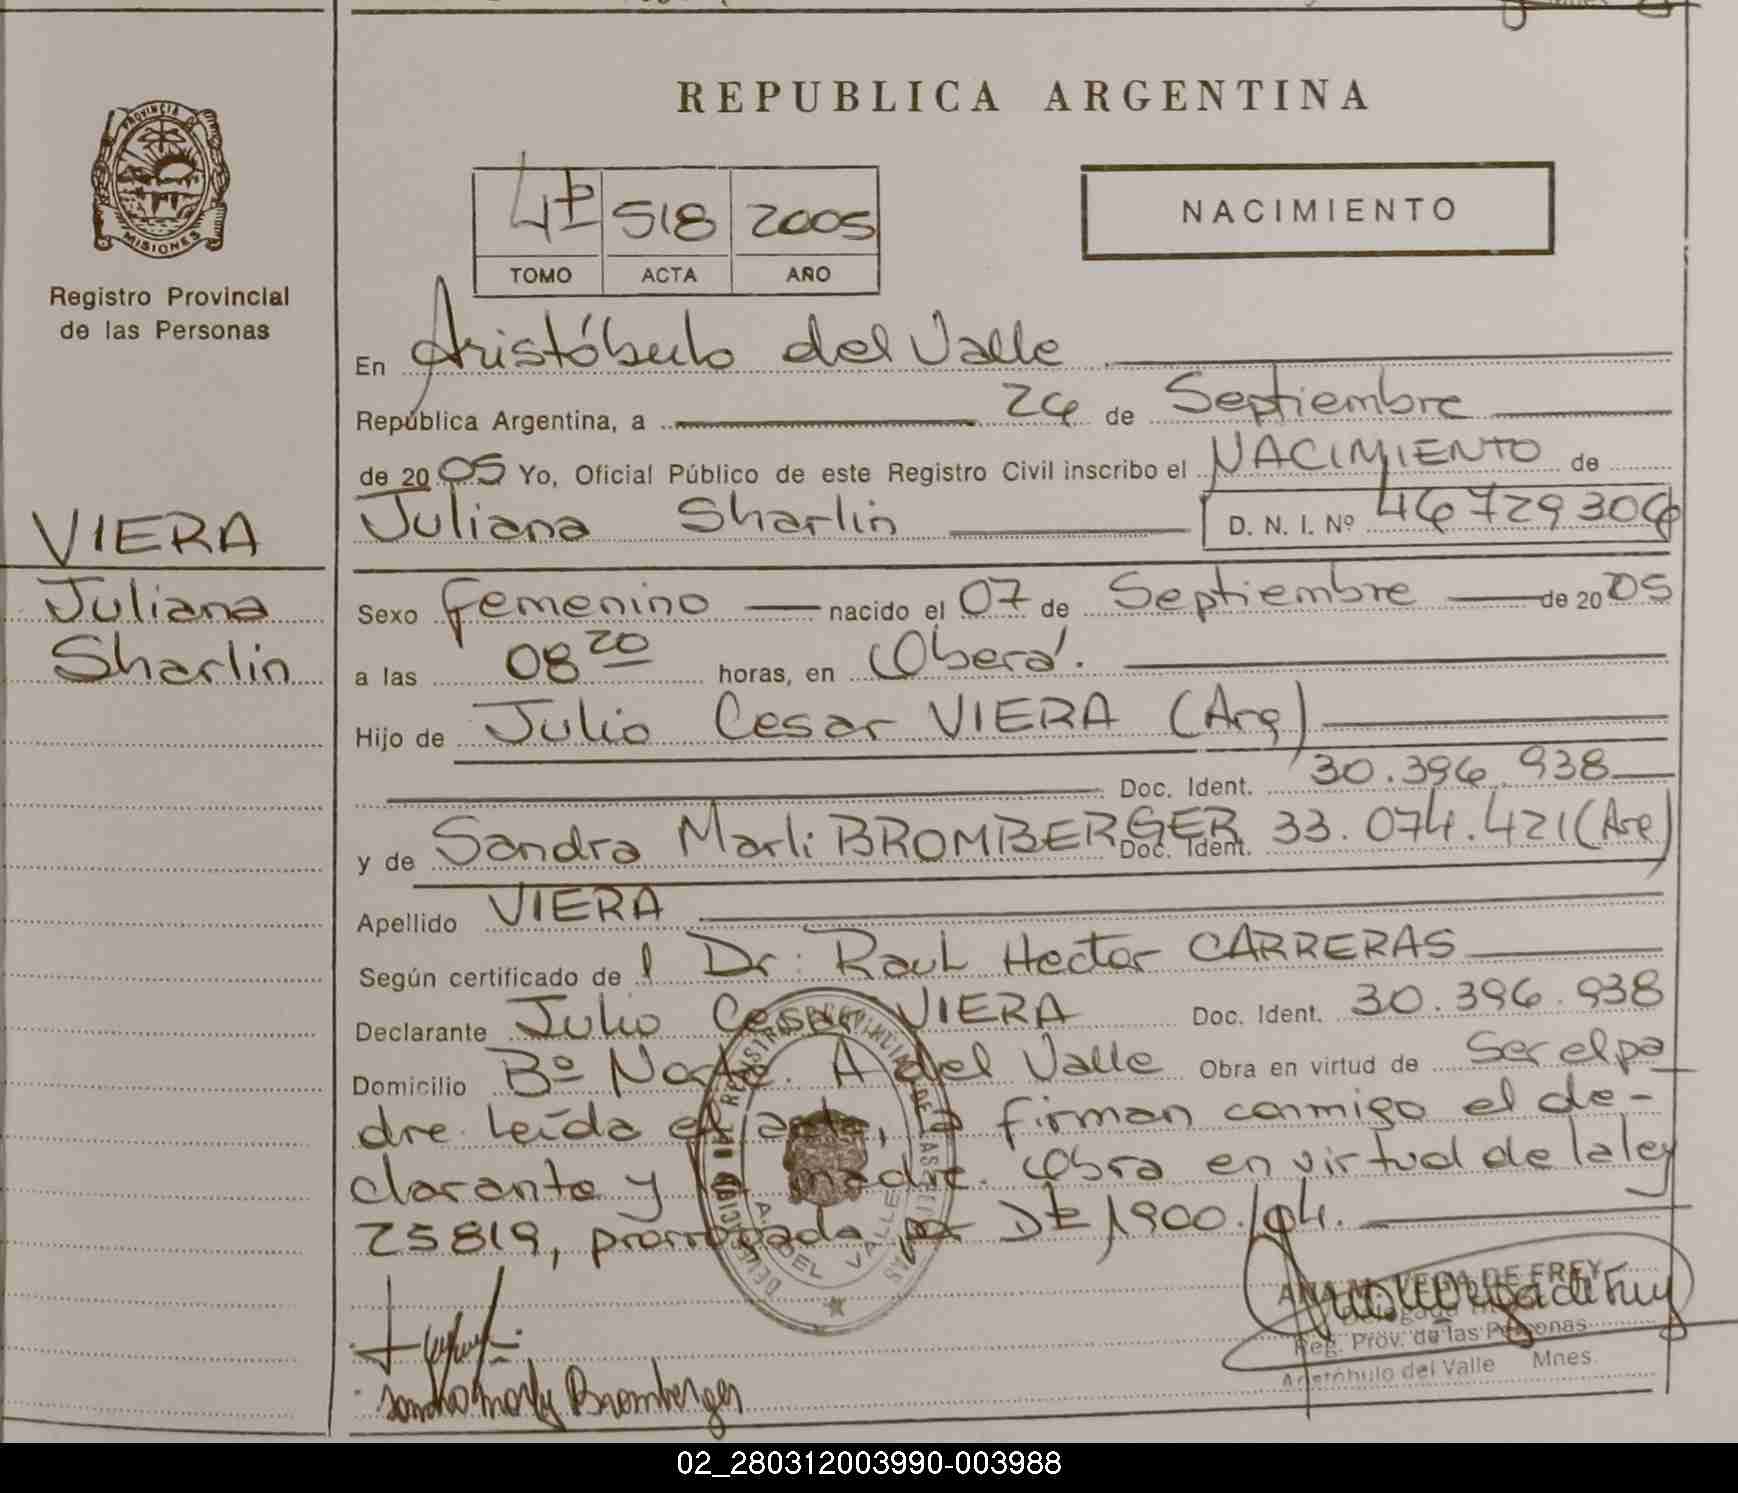 REPUBLICA ARGENTINA
PROVINCIA DE
MISIONES
Registro Provincial
de las Personas
VIERA
Juliana
Sharlin
4º 518 2005
TOMO ACTA AÑO
NACIMIENTO
En Aristóbulo del Valle
República Argentina, a 26 de Septiembre
de 2005 Yo, Oficial Público de este Registro Civil inscribo el NACIMIENTO de
Juliana Sharlin D. N. I. Nº 46729306
Sexo Femenino nacido el 07 de Septiembre de 2005
a las 08 20 horas, en Oberá.
Hijo de Julio Cesar VIERA (Arg)
Doc. Ident. 30.396.938
y de Sandra Marli BROMBERGER Doc. Ident. 33.074.421 (Arg)
Apellido VIERA
Según certificado de l Dr. Raul Hector CARRERAS
Declarante Julio Cesar VIERA Doc. Ident. 30.396.938
Domicilio Bº Norte. A del Valle Obra en virtud de Ser el pa
dre. Leída el acta, la firman conmigo el de-
clarante y la madre. Obra en virtud de la ley
25819, prorrogada por Dt 1900/04.
REGISTRO PROVINCIAL DE LAS PERSONAS
A. DEL VALLE
ANA M. VEGA DE FREY
Delegada
Reg. Prov. de las Personas
Aristóbulo del Valle Mnes.
Sandra Marly Bromberger
02_280312003990-003988